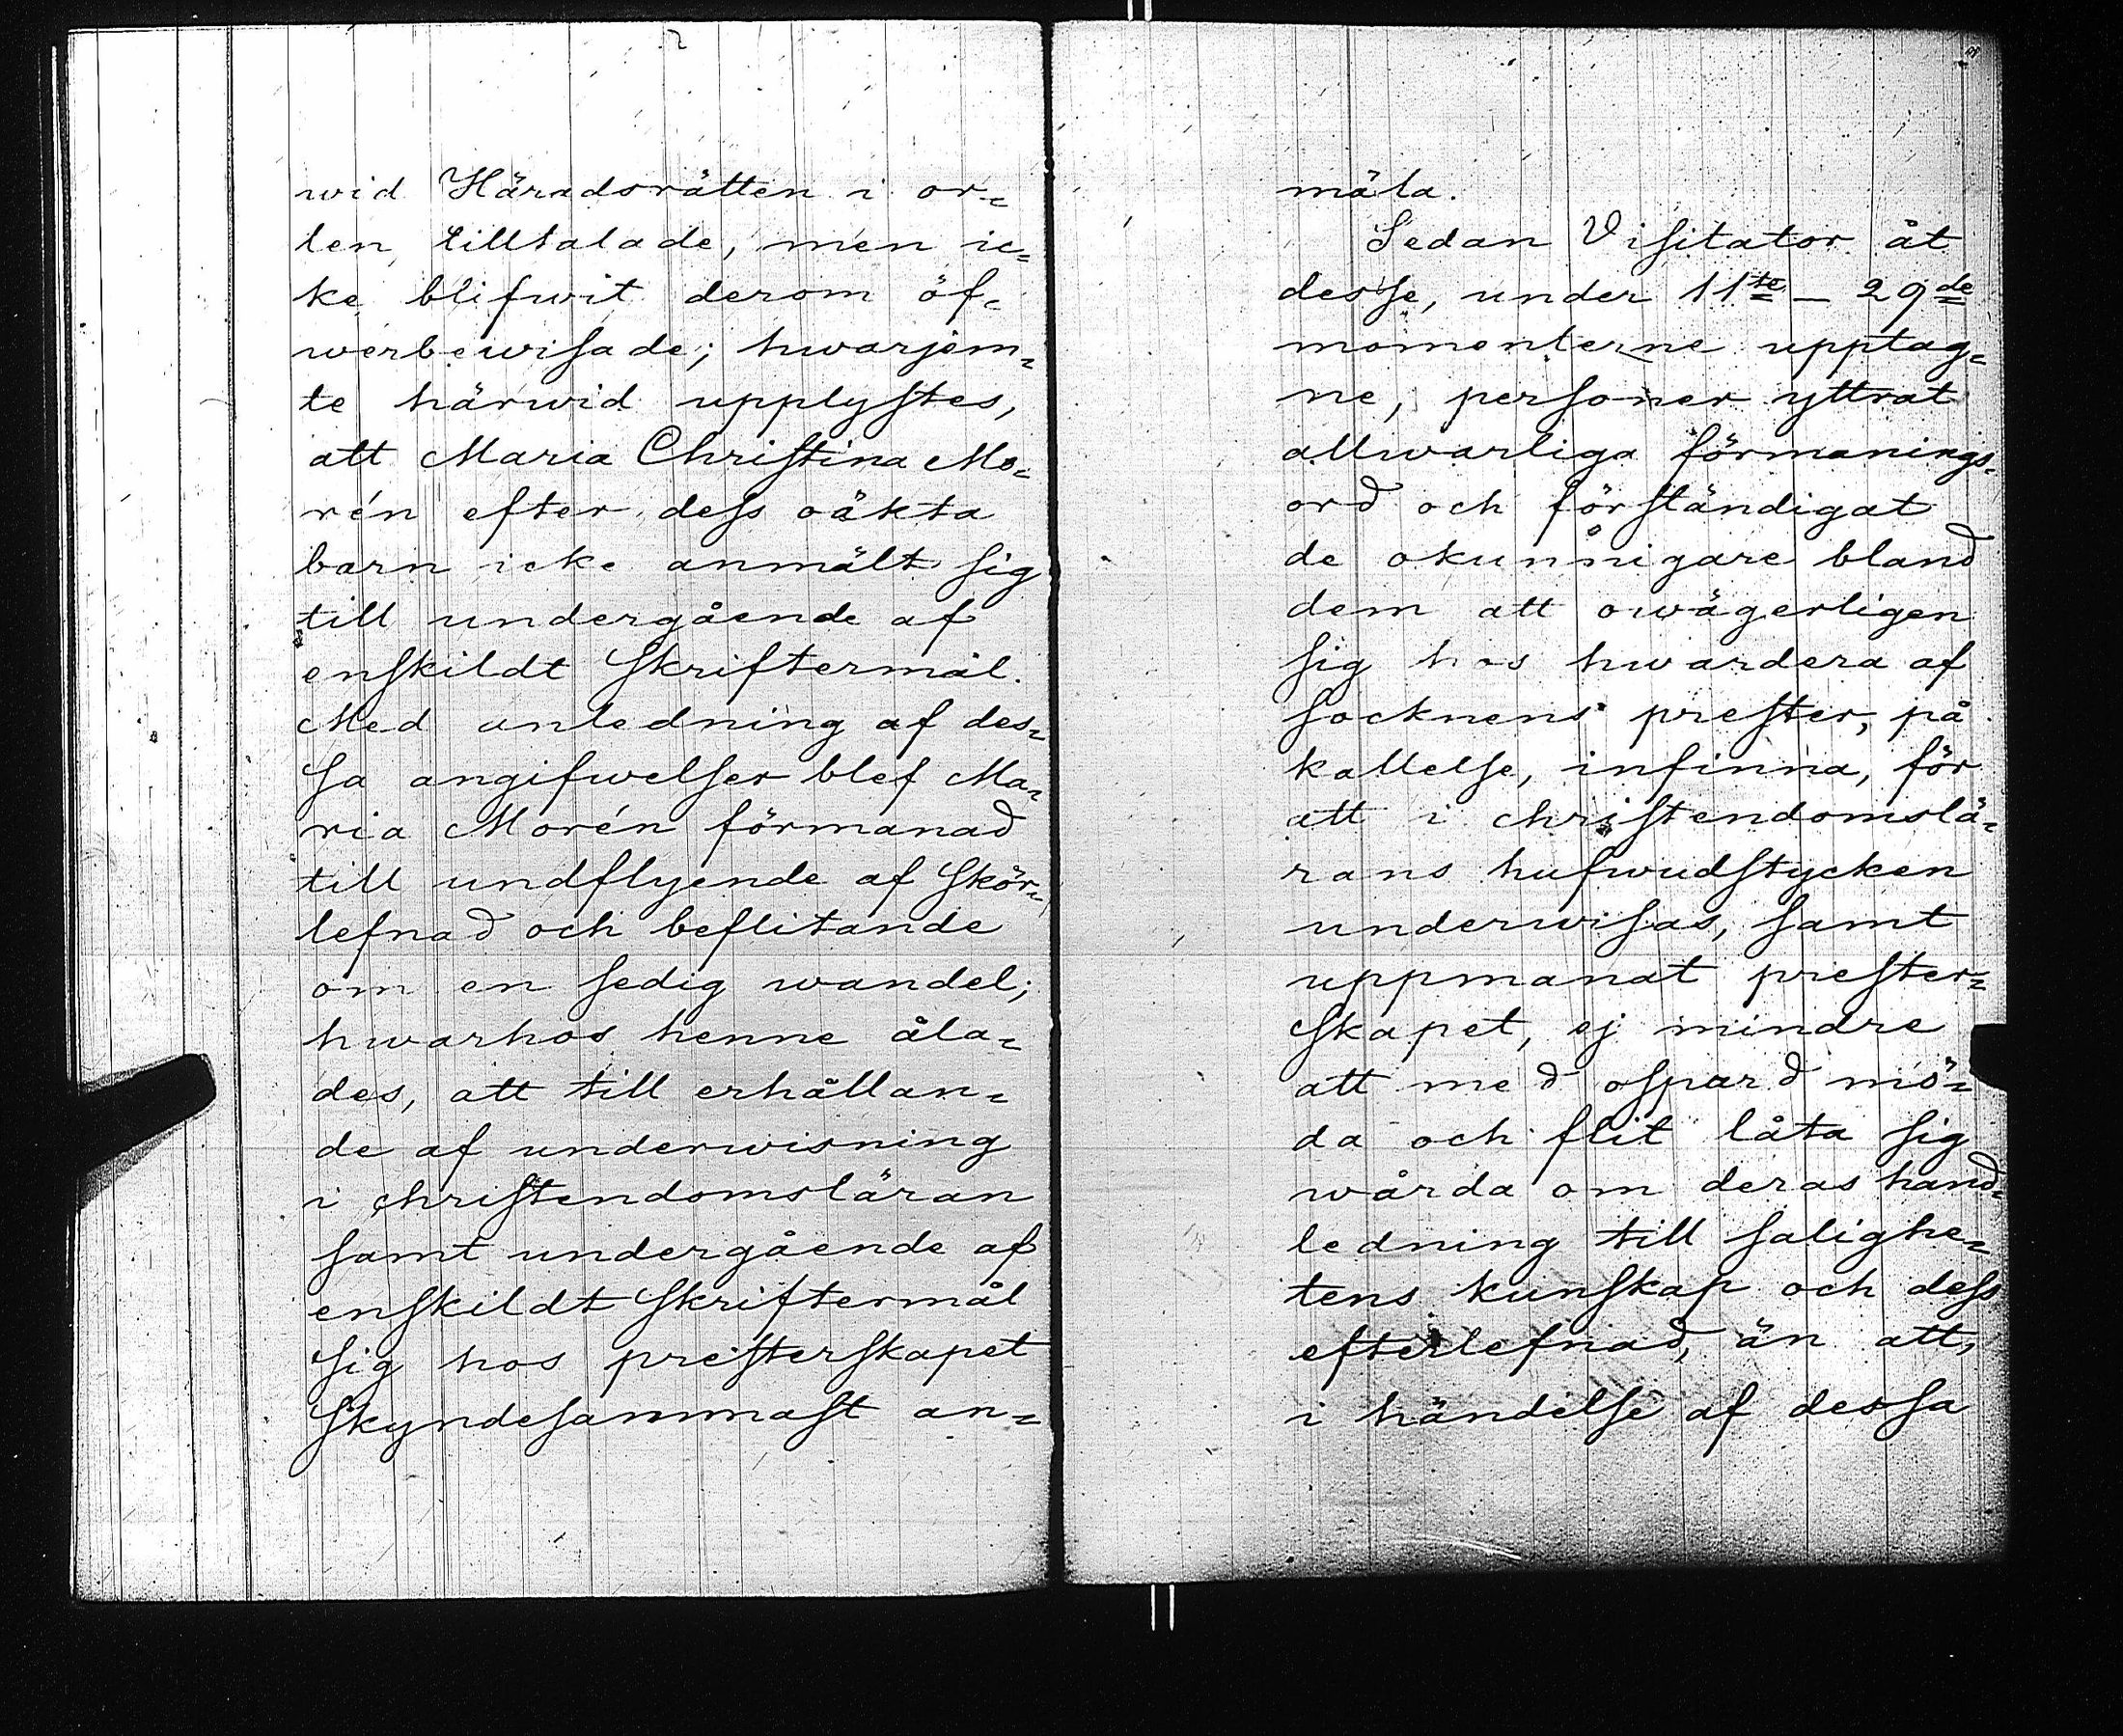 wid Häradsrätten i or-
ten tilltalade, men ic-
ke blifwit derom öf-
werbewisade; hwarjem-
te härwid upplystes,
att Maria Christina Mo-
rén efter dess oäkta
barn icke anmält sig
till undergående af
enskildt skriftermål.
Med anledning af des-
sa angifwelser blef Ma-
ria Morén förmanad
till undflyende af skör-
lefnad och beflitande
om en sedig wandel;
hwarhos henne åla-
des, att till erhållan-
de af underwisning
i christendomsläran
samt undergående af
enskildt skriftermål
sig hos presterskapet
skyndesammast an-
mäla.
Sedan Visitator åt
desse, under 11te – 29de
momenterne upptag-
ne, personer yttrat
allwarliga förmanings-
ord och förständigat
de okunnigare bland
dem att owägerligen
sig hos hwardera af
socknens prester, på
kallelse, infinna, för
att i christendomslä-
rans hufwudstycken
underwisas, samt
uppmanat prester-
skapet, ej mindre
att med ospard mö-
da och flit låta sig
wårda om deras hand-
ledning till salighe-
tens kunskap och dess
efterlefnad, än att,
i händelse af dessa